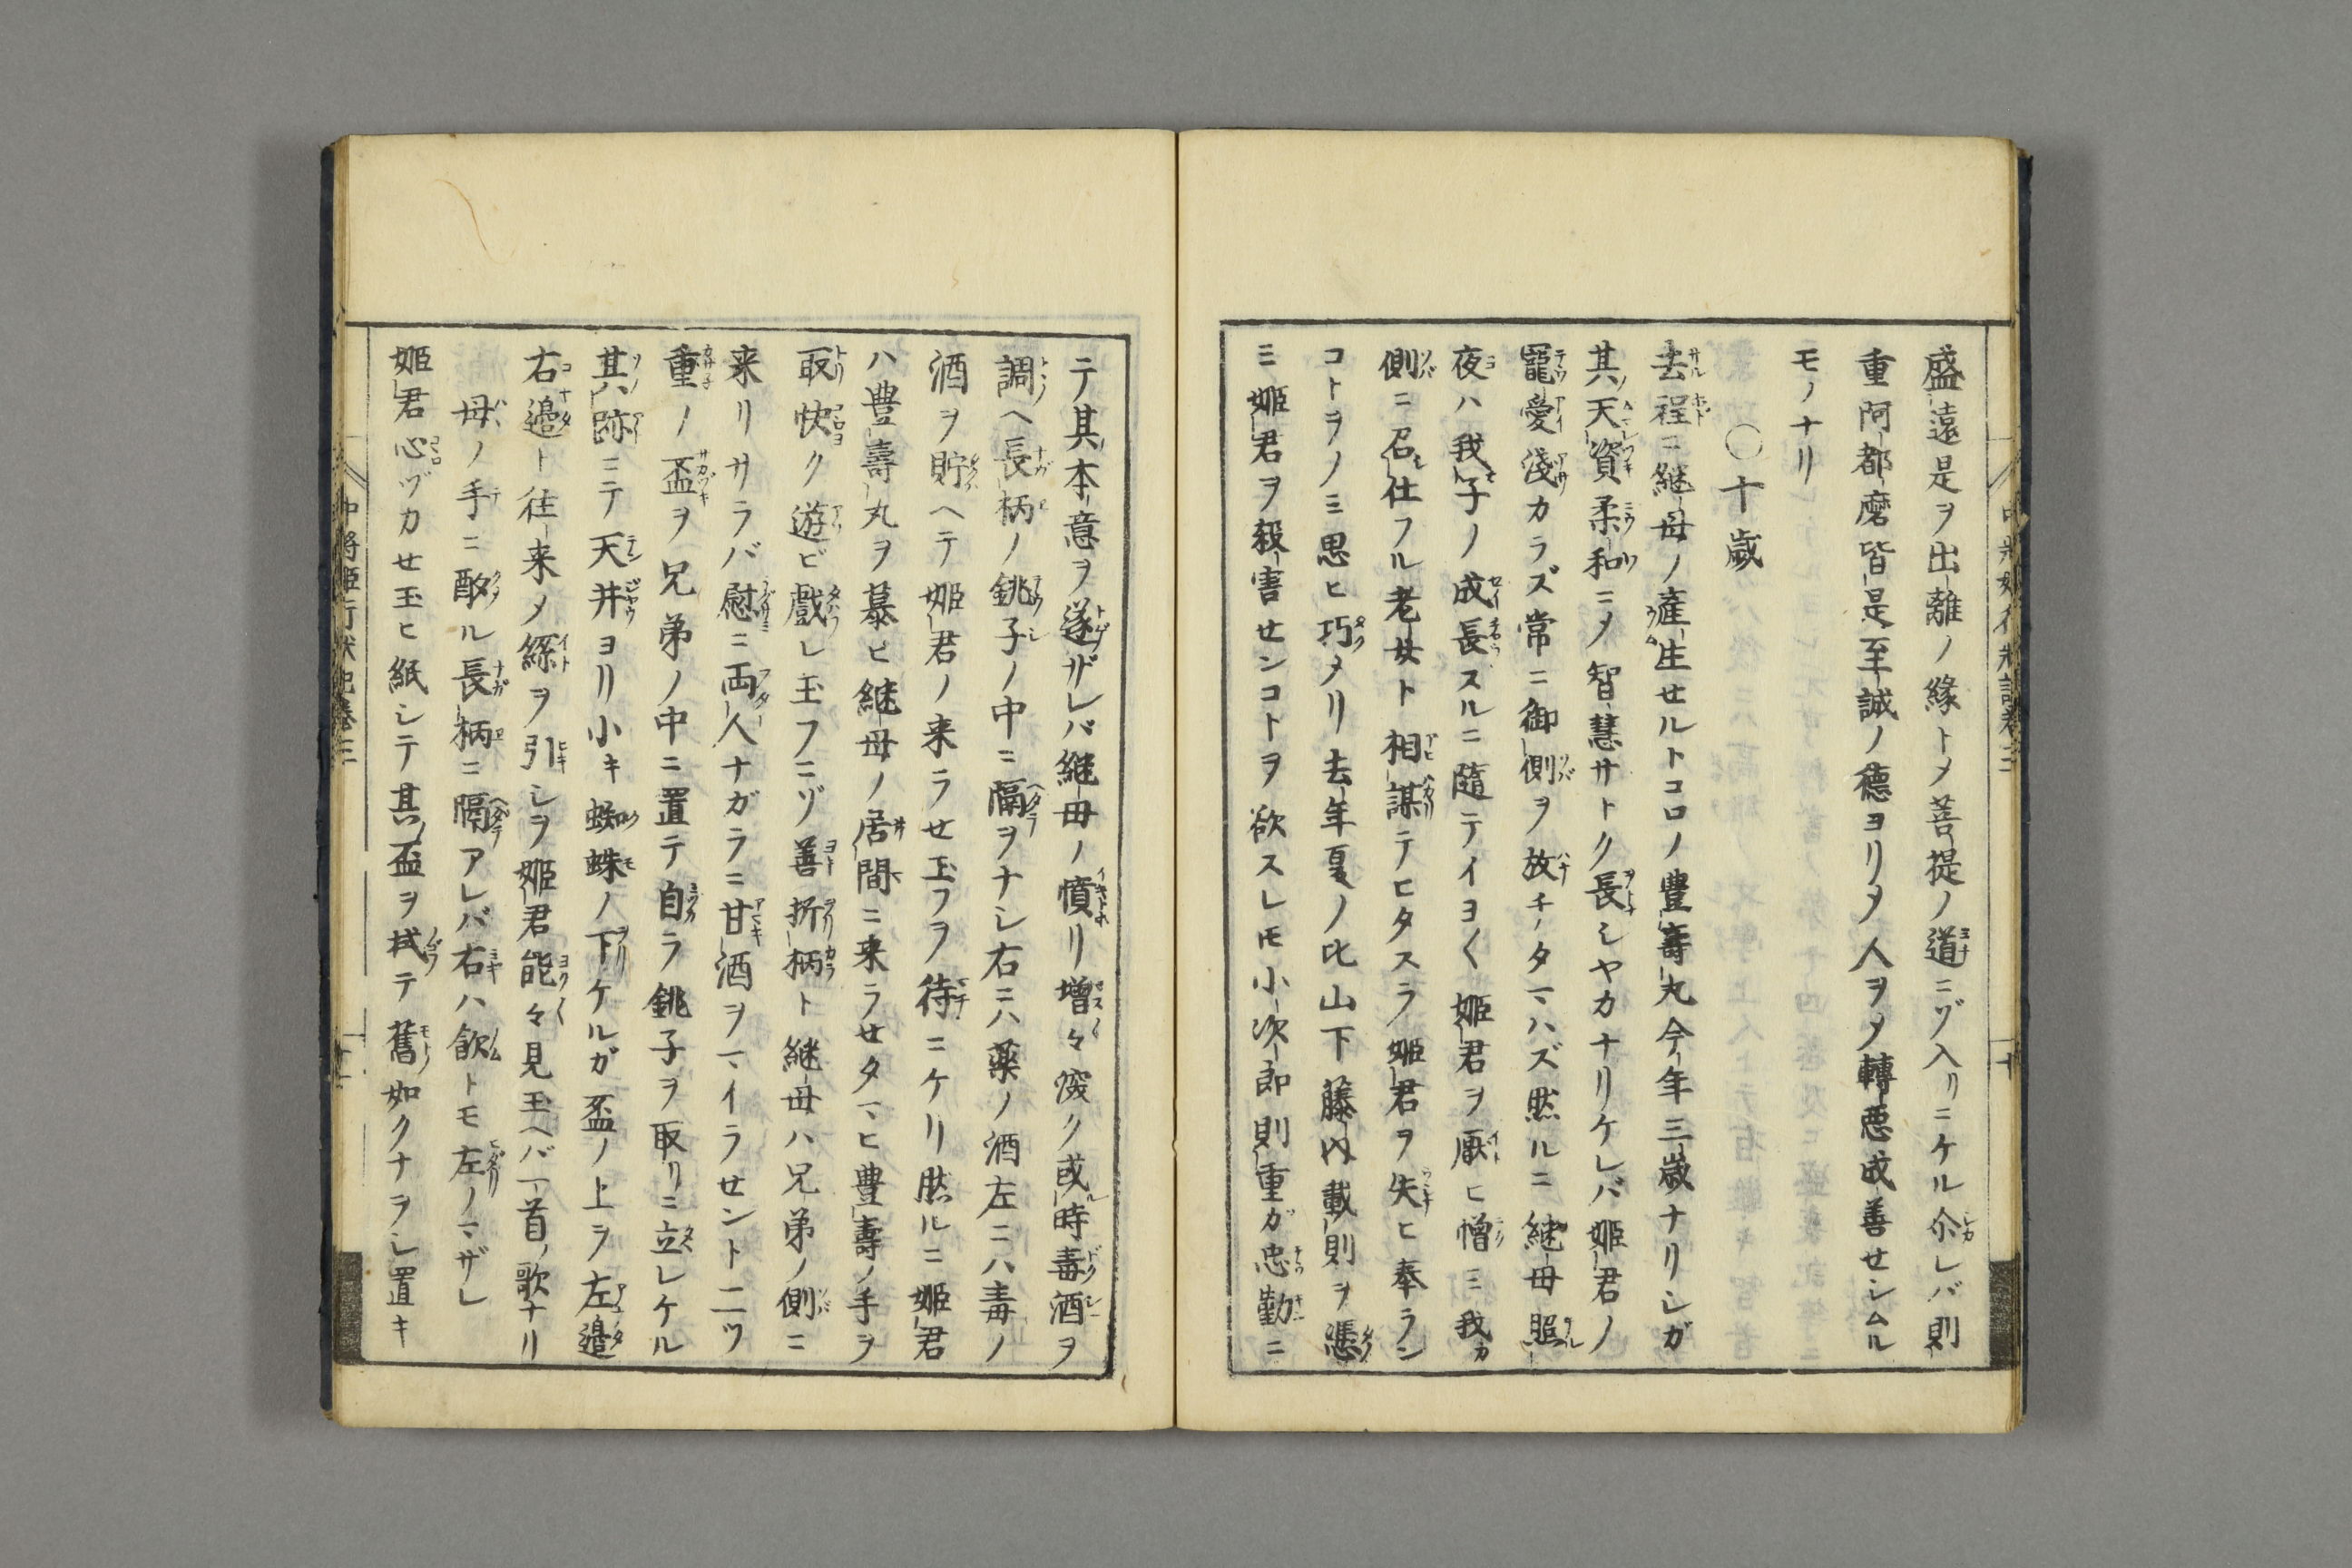 盛遠是ヲ出離ノ縁トメ菩提ノ道ニゾ入リニケル尒レバ則
重阿都磨皆是至誠ノ德ヨリメ人ヲメ轉悪成善セシムル
モノナリ
〇十歳
去程ニ継母ノ産生セルトコロノ豊壽丸今年三歳ナリシガ
其天資柔和ニメ智慧サトク長シヤカナリケレバ姫君ノ
寵愛淺カラズ常ニ御側ヲ放チタマハズ然ルニ継母照
夜ハ我子ノ成長スルニ隨テイヨ〱姫君ヲ厭ヒ憎ミ我カ
側ニ召仕フル老女ト相謀テヒタスラ姫君ヲ失ヒ奉ラン
コトヲノミ思ヒ巧メリ去年夏ノ比山下藤内載則ヲ憑
ミ姫君ヲ殺害センコトヲ欲スレ𪜈小次郎則重ガ忠勤ニ
テ其本意ヲ遂ザレバ継母ノ憤リ増々深ク或時毒酒ヲ
調ヘ長柄ノ銚子ノ中ニ隔ヲナシ右ニハ薬ノ酒左ニハ毒ノ
酒ヲ貯ヘテ姫君ノ来ラセ玉フヲ待ニケリ然ルニ姫君
ハ豊壽丸ヲ慕ヒ継母ノ居間ニ来ラセタマヒ豊壽ノ手ヲ
取快ク遊ビ戲レ玉フニゾ善折柄ト継母ハ兄弟ノ側ニ
来リサラバ慰ニ両人ナガラニ甘酒ヲマイラセント二ツ
重ノ盃ヲ兄弟ノ中ニ置テ自ラ銚子ヲ取リニ立レケル
其跡ニテ天井ヨリ小キ蜘蛛ノ下ケルガ盃ノ上ヲ左邉
右邉ト往来メ絲ヲ引シヲ姫君能々見玉ヘバ一首ノ歌ナリ
母ノ手ニ酌ル長柄ニ隔アレバ右ハ飲トモ左ノマザレ
姫君心ヅカセ玉ヒ紙シテ其盃ヲ拭テ舊如クナヲシ置キ
中將姫行状記巻三